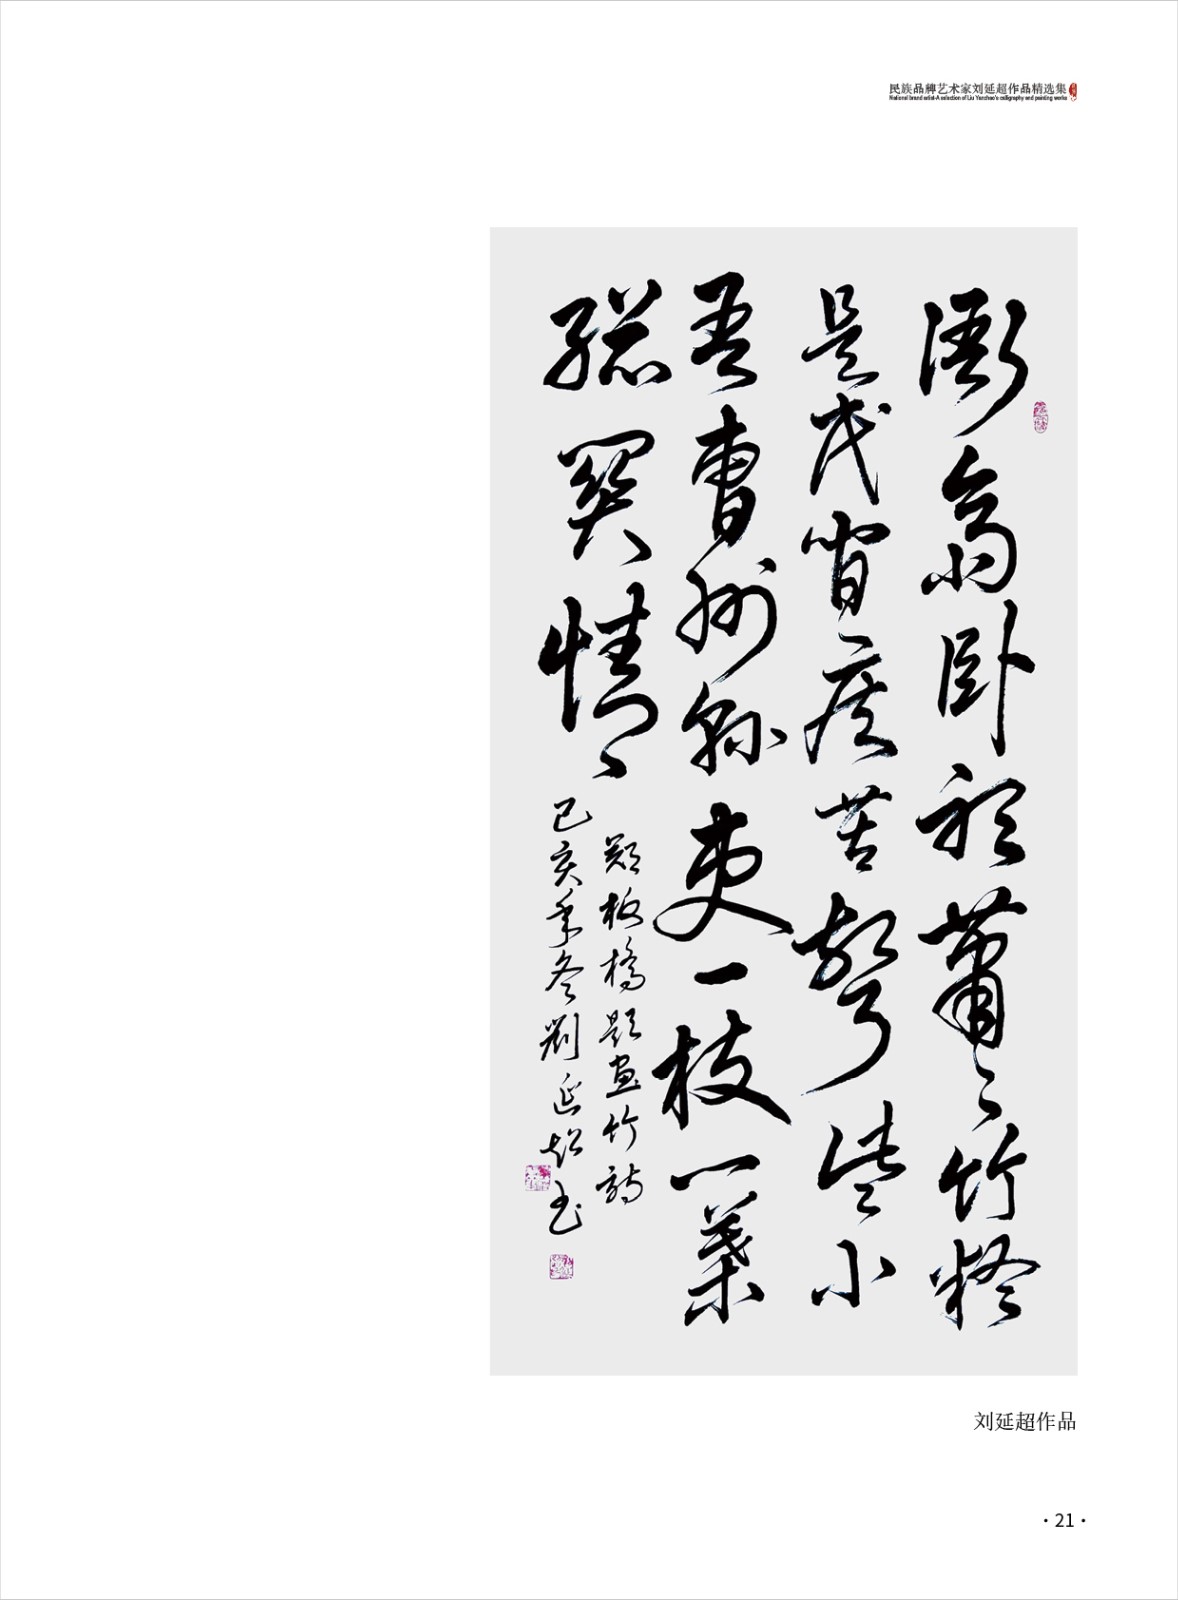 民族品牌艺术家刘延超作品精选集
National brand artist-A selection of Liu Yanchao's calligraphy and painting works
衙齋卧聽蕭〻竹疑
是民間疾苦聲些小
吾曹州縣吏一枝一葉
總關情
鄭板橋題畫竹詩
己亥年冬劉延超书
刘延超作品
·21·